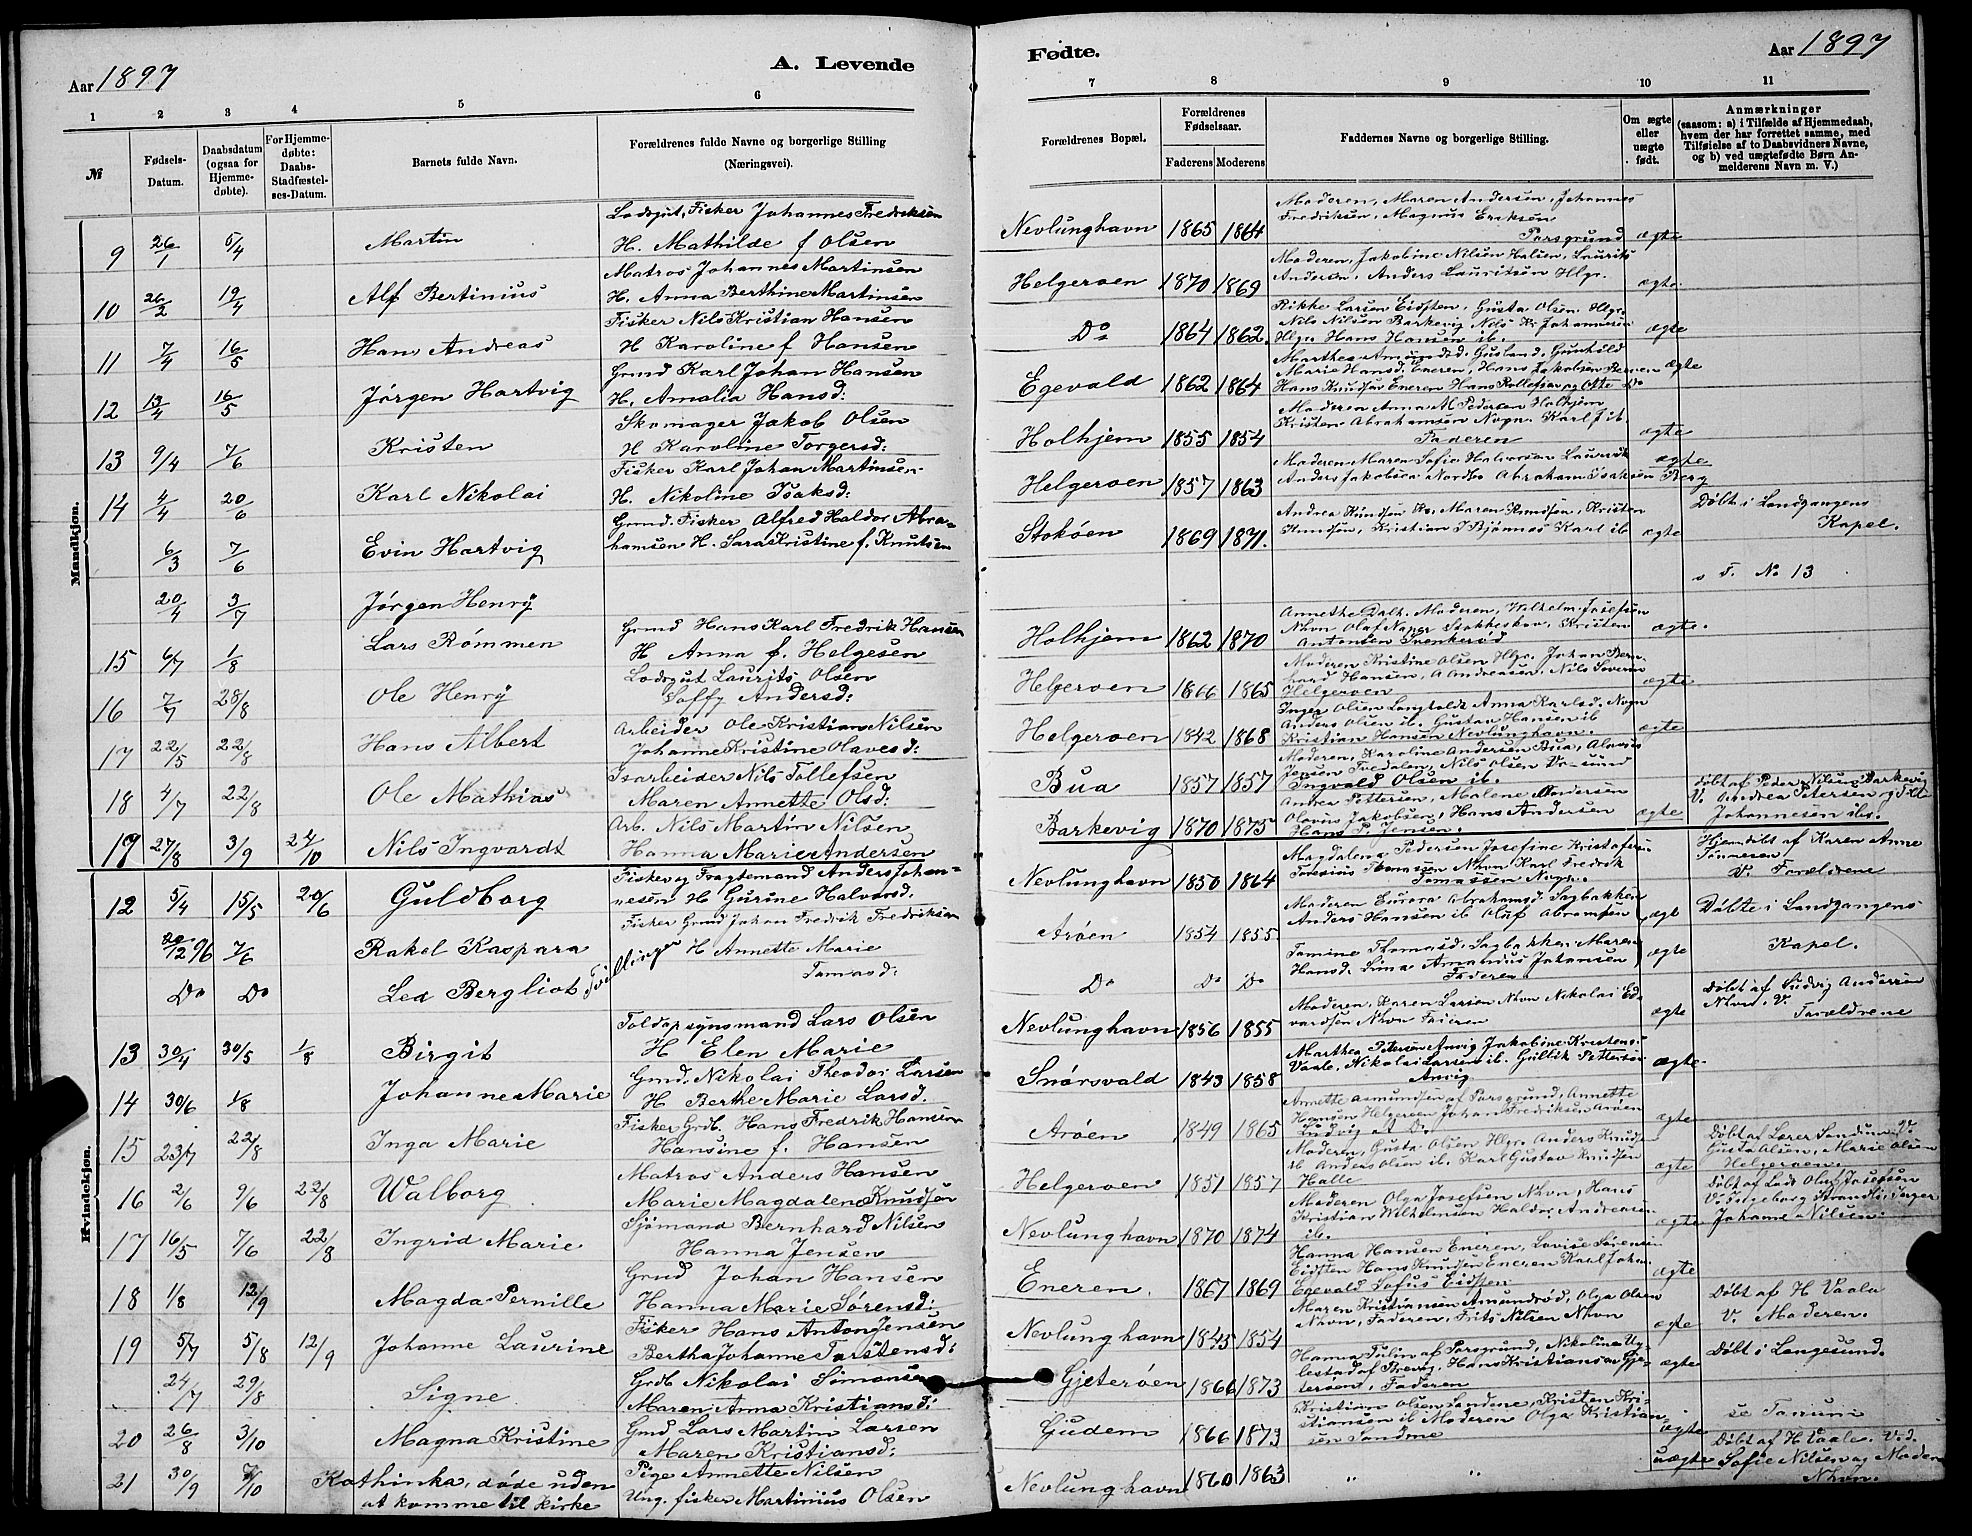 Aar 1897
A. Levende
1 2 3 4 5 6
№
Fødsels-
Datum.
Daabsdatum
(ogsaa for
Hjemme-
døbte).
For Hjemme-
døbte:
Daabs-
Stadfæstel-
ses-Datum.
Barnets fulde Navn.
Forældrenes fulde Navne og borgerlige Stilling
(Næringsvei).
Mandkjøn.
Lodsgut, Fisker Johannes Fredriksen
9 26/1 5/4 Martin H. Mathilde f Olsen
Matros Johannes Martinsen
10 26/2 19/4 Alf Bertinius H. Anna Berthine Martinsen
Fisker Nils Kristian Hansen
11 7/4 16/5 Hans Andreas H Karoline f Hansen
Grmd Karl Johan Hansen
12 13/4 16/5 Jørgen Hartvig H. Amalia Hansd:
Skomager Jakob Olsen
13 9/4 7/6 Kristen H Karoline Torgersd:
Fisker Karl Johan Martinsen
14 4/4 20/6 Karl Nikolai H. Nikoline Isaksd:
Grmd. Fisker Alfred Haldor Abra-
6/3 7/6 Evin Hartvig hamsen H. Sara Kristine f. Knutsen
20/4 3/7 Jørgen Henry
Grmd Hans Karl Fredrik Hansen
15 6/7 1/8 Lars Rømmen H Anna f. Helgesen
Lodsgut Laurits Olsen
16 7/7 28/8 Ole Henry Saffy Andersd:
Arbeider Ole Kristian Nilsen
17 22/5 22/8 Hans Albert Johanne Kristine Olavesd:
Isarbeider Nils Tollefsen
18 4/7 22/8 Ole Mathias Maren Annette Olsd:
Arb. Nils Martin Nilsen
19 27/8 3/9 24/10 Nils Ingvardt Hanna Marie Andersen
Kvindekjøn.
Fisker og Fragtemand Anders Johan-
12 5/4 15/5 20/6 Guldborg nesen H Gurine Halvorsd.
Fisker Grmd Johan Fredrik Fredriksen
20/12 96 7/6 Rakel Kaspara H Annette Marie
Do Do Lea Bergliot Tvillinge Tomasd:
Toldopsynsmand Lars Olsen
13 30/4 30/5 1/8 Birgit H Elen Marie
Gmd. Nikolai Theodor Larsen
14 30/6 1/8 Johanne Marie H Berthe Marie Larsd.
Fisker Grdb. Hans Fredrik Hansen
15 23/7 22/8 Inga Marie Hansine f. Hansen
Matros Anders Hansen
16 2/6 9/6 22/8 Walborg Marie Magdalene Knudsen
Sjømand Bernhard Nilsen
17 16/5 7/6 22/8 Ingrid Marie Hanna Jensen
Grmd Johan Hansen
18 1/8 12/9 Magda Pernille Hanna Marie Sørensd:
Fisker Hans Anton Jensen
19 5/7 5/8 12/9 Johanne Laurine Bertha Johanne Torstensd:
Grdb Nikolai Simonsen
24/7 29/8 Signe Maren Anna Kristiansd:
Gmd Lars Martin Larsen
20 26/8 3/10 Magna Kristine Maren Kristiansd:
Pige Annette Nilsen
21 30/9 7/10 Kathinka, døde uden
at komme til Kirke
Ung. fisker Martinius Olsen
Fødte.
Aar 1897
7 8 9 10 11
Forældrenes Bopæl.
Forældrenes
Fødselsaar.
Faderens Moderens
Faddernes Navne og borgerlige Stilling.
Om ægte
eller
uægte
født.
Anmærkninger
(saasom: a) i Tilfælde af Hjemmedaab,
hvem der har forrettet samme, med
Tilføielse af to Daabsvidners Navne,
og b) ved uægtefødte Børn An-
melderens Navn m. V.)
Moderen, Maren Andersen, Johannes
Fredriksen, Magnus Eriksen
Nevlunghavn 1865 1864 Porsgrund ægte
Moderen, Jakobine Nilsen Halien, Laurits
Helgeroen 1870 1869 Andersen, Anders Lauritsen Hlgr. ægte
Rikke Larsen Eidsten, Gusta Olsen Hlgr.
Nils Nilsen Barkevig Nils Kr Johannesen
Do 1864 1862. Hlgr. Hans Hansen ib. ægte
Marthea Amundsd. Gusland, Gunhild
Marie Hansd. Eneren, Hans Jakobsen
Egevald 1862 1864 Hans Knudsen Eneren Hans Rollefsen og Otte Do ægte
Moderen Anna M Pedersen Holhjem
Kristen Abrahamsen Nvgn. Karl J ib.
Holhjem 1855 1854 Faderen ægte
Moderen Maren Sofie Halvorsen Laurits
Helgeroen 1857 1863 Anders Jakobsen Nordbo Abraham Isaksen Berg ægte
Andrea Knudsen Maren Knudsen, Kristen
Stokøen 1869 1871. Knudsen, Kristian J Bjønnes Karl ib ægte Døbt i Landgangens
Kapel.
s F. No 13
Annethe Dalh. Moderen, Wilhelm Josefsen
Nhvn Olaf Naper Stokkeskov, Kristen
Holhjem 1862 1870 Antonsen Svenkerød ægte.
Moderen Kristine Olsen Hlgr. Johan Bern
hard Hansen, A Andreasen, Nils Soveren
Helgeroen 1866 1865 Helgeroen ægte
Inger Olsen Langholdt Anna Karlsd. Nvgn
Anders Olsen ib. Gustav Hansen ib
Helgeroen 1842 1868 Kristian Hansen Nevlunghavn. ægte
Moderen, Karoline Andersen Bua, Alovius
Jensen Tvedalen, Nils Olsen Do
Bua 1857 1857 Ingvald Olsen ib.
Andrea Pettersen, Malene Andersen
Olavus Jakobsen, Hans Andersen
Barkevig 1870 1875 Hans P. Jensen. ægte
Døbt af Peder Nilsen Barkevig
V. Andrea Petersen og
Johannesen ibs.
Magdalena Pedersen Josefine Kristofersen
Tomasen Nhvn Karl Fredrik
Nevlunghavn 1850 1864 Tomassen Nvgn.
Hjemdøbt af Karen Anne
Tønnesen
V. Forældrene
Moderen Aurora Abrahamsd. Sagbakken
Arøen 1854 1855 Anders Hansen ib Olaf Abramsen ægte Døbte i Landgangens
Tomine Thomasd. Sagbakken Maren
Hansd. Sina Amandus Johansen ægte Kapel.
Do Do Do Faderen
Moderen, Karen Larsen Nhvn Nikolai Ed
Nevlunghavn 1856 1855 vardsen Nhvn Faderen ægte
Døbt af Ludvig Andersen
Nhvn. V.
Forældrene
Marthea Petersen Anvig Jakobine Kristens.
Vaale, Nikolai Larsen ib. Gulbik Pettersen
Snørsvald 1843 1858 Anvig ægte
Annette Asmundsen af Porsgrund, Annette
Hansen Helgeroen Johan Fredriksen Arøen
Arøen 1849 1865 Ludvig at Do ægte
Moderen, Gusta Olsen Hlgr. Anders Knuds
ib Anders Olsen ib. Karl Gustav Knudsen
Helgeroen 1851 1857 Halle ægte
Døbt af Lærer Sandum V.
Gusta Olsen, Marie Olsen
Helgeroen
Moderen Olga Josefsen Nhvn, Hans
Kristian Wilhelmsen Haldor Andreasen
Nevlunghavn 1870 1874 ib. ægte
Døbt af Lods Oluf Josefsen
V. Ingeborg Strandli, Inger
Johanne Nilsen
Hanna Hansen Eneren, Lovise Sørensen
Eidsten Hans Knudsen Eneren Karl Johan
Eneren. 1867 1869 Egevald Sofus Eidsten ægte
Maren Kristiansen Amundrød, Olga Olsen
Nevlunghavn 1845 1854 Nhvn, Faderen, Frits Nilsen Nhvn ægte
Døbt af H Vaale
V. Moderen.
Hanna Tulin af Porsgrund, Nikoline Uy-
lestad af Brevig, Hans Kristiansen Gjæ-
Gjeterøen 1866 1873 terøen, Faderen ægte Døbt i Langesund.
Kristian Olsen Sandene, Kristen Kri-
stiansen ib Moderen Olga Kristian-
Gudem 1866 1873 sen Sandene ægte
Nevlunghavn 1860 1863 " " uægte
Døbt af H Vaale. V.d.
Sofie Nilsen og Moderen
Nhvn.